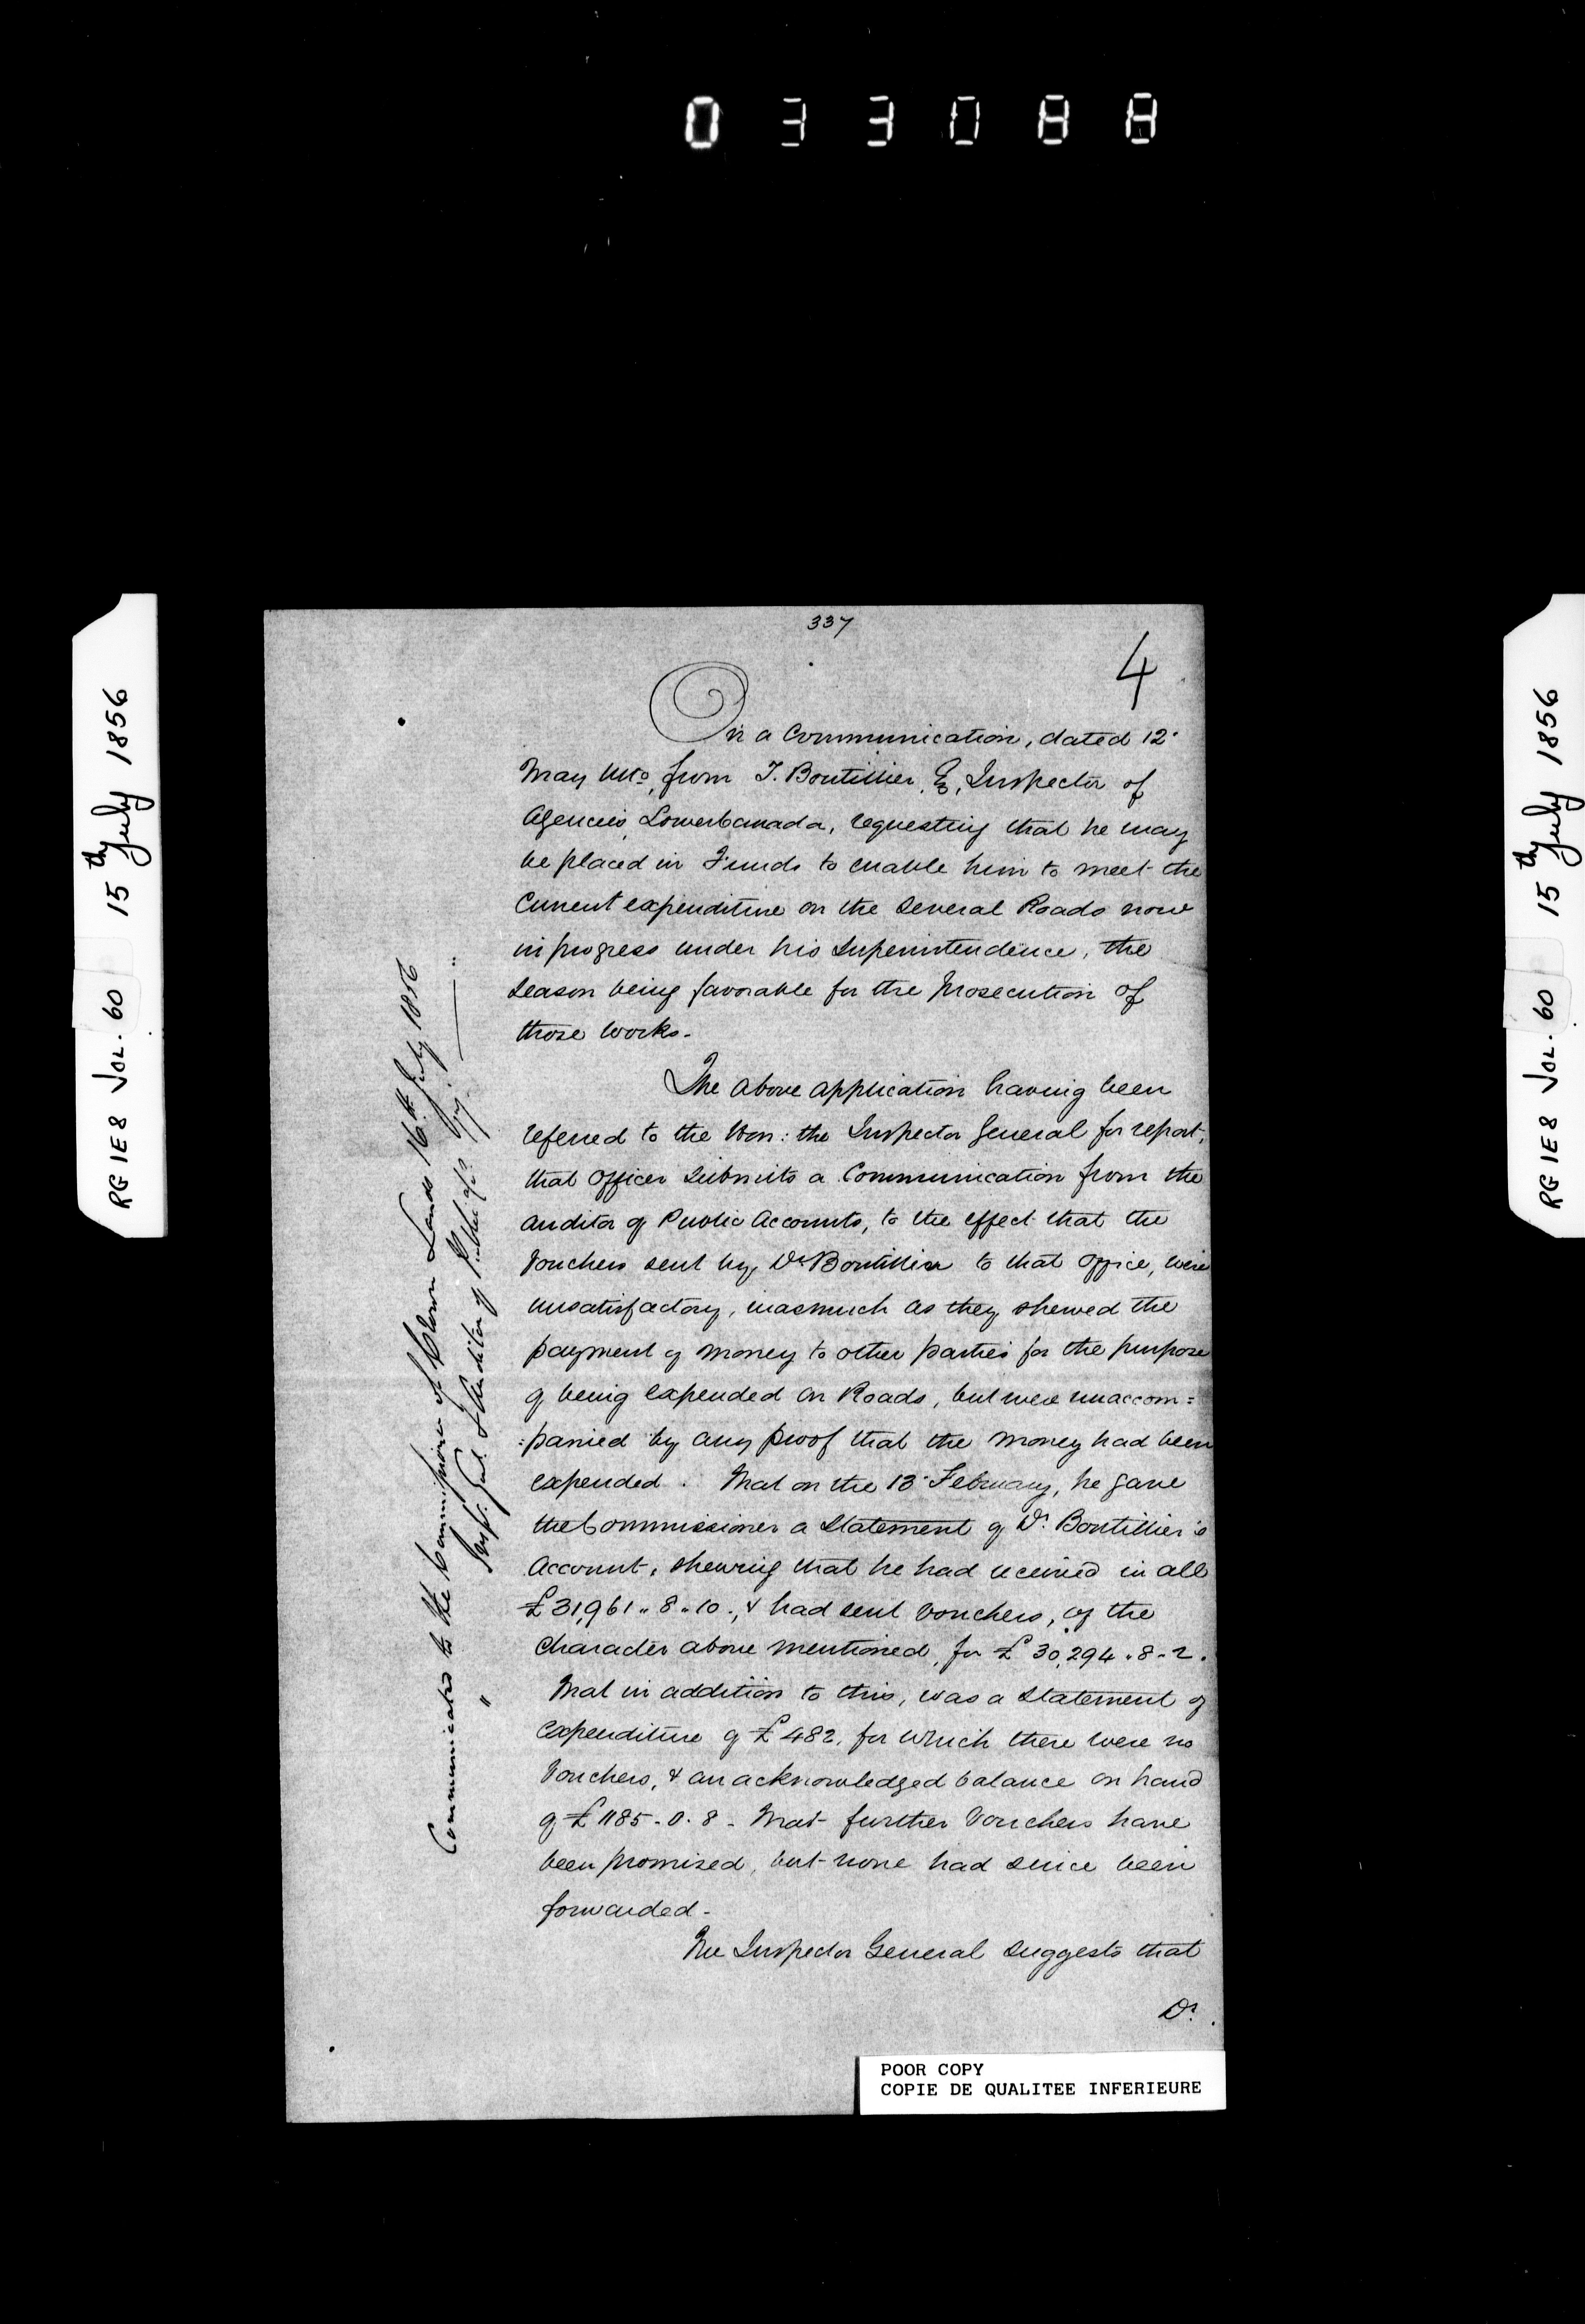 033088
RG 1E8 VOL. 60 15th July 1856
337
4
On a Communication, dated 12
May ulto, from T. Boutillier, Esq, Inspector of
Agencies, Lower Canada, requesting that he may
be placed in Funds to enable him to meet the
Current expenditure on the Several Roads now
in progress under his Superintendence, the
Season being favorable for the prosecution of
those Works.
The above application having been
referred to the Hon: the Inspector General for report,
that Officer Submits a Communication from the
Auditor of Public Accounts, to the effect that the
Vouchers sent by Dr Boutillier to that Office, were
unsatisfactory, inasmuch as they shewed the
payment of money to other parties for the purpose
of being expended on Roads, but were unaccom=
:panied by any proof that the money had been
expended. That on the 13 February, he gave
the Commissioner a Statement of Dr. Boutillier's
Account, shewing that he had received in all
£31,961..8..10., & had sent Vouchers, of the
Character above mentioned, for £30,294.8-2.
That in addition to this, was a Statement of
expenditure of £482, for which there were no
Vouchers, & an acknowledged balance on hand
of £1185-0.8- That further Vouchers have
been promised, but none had since been
forwarded-
The Inspector General suggests that
Dr.
Communicated to the Commissioner of Crown Lands 16th July 1856
" Insp. Genl. & Auditor of Public
POOR COPY
COPIE DE QUALITEE INFERIEURE
RG 1E8 VOL. 60 15th July 1856